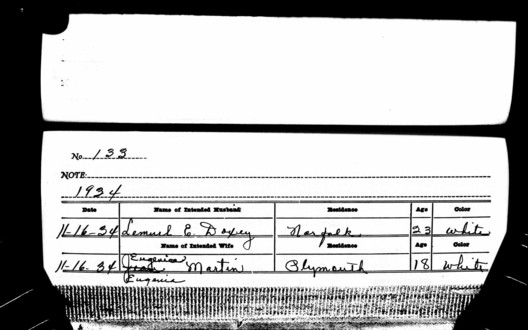 No. 133
NOTE
1934
Date Name of Intended Husband Residence Age Color
11-16-34 Lemuel E. Doxey Norfolk 23 white
Name of Intended Wife Residence Age Color
Eugenica
11-16-34 Martin Plymouth 18 white
Eugenia